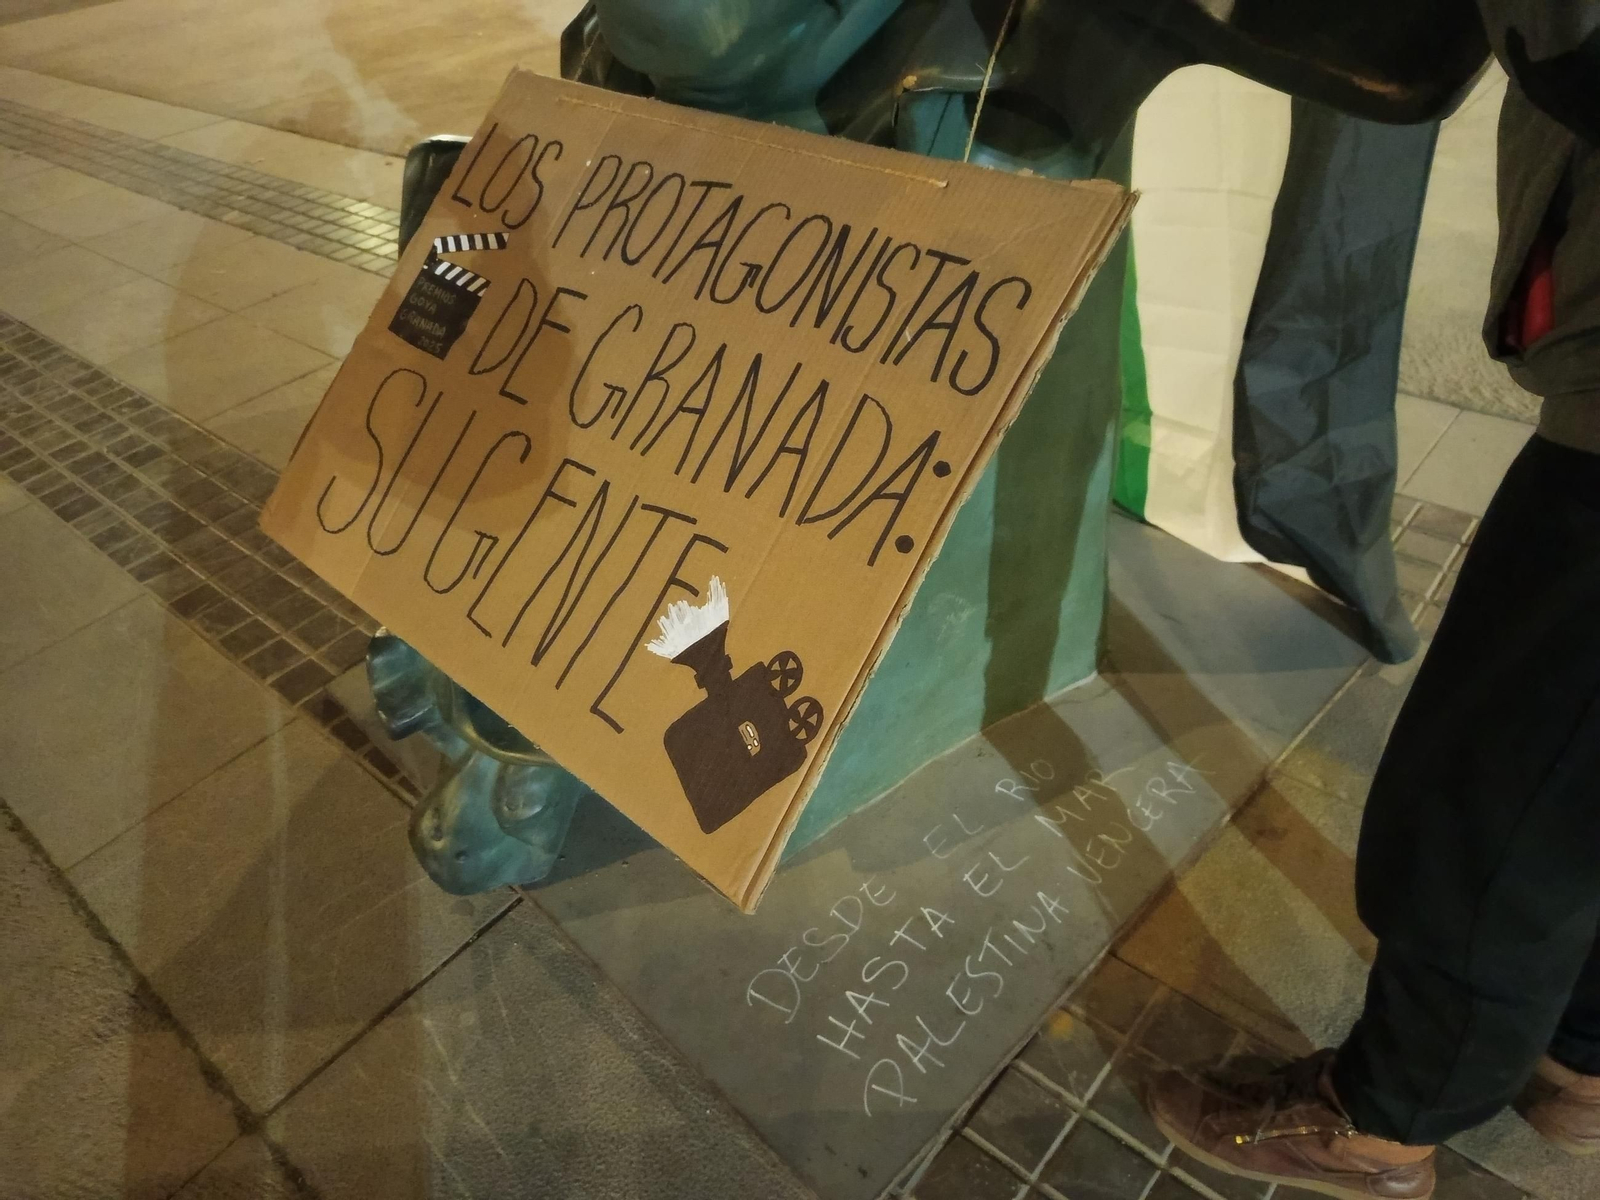 LOS PROTAGONISTAS
DE GRANADA:
SU GENTE
PREMIOS
GOYA
GRANADA
2025
DESDE EL RIO
HASTA EL MAR
PALESTINA VENCERA